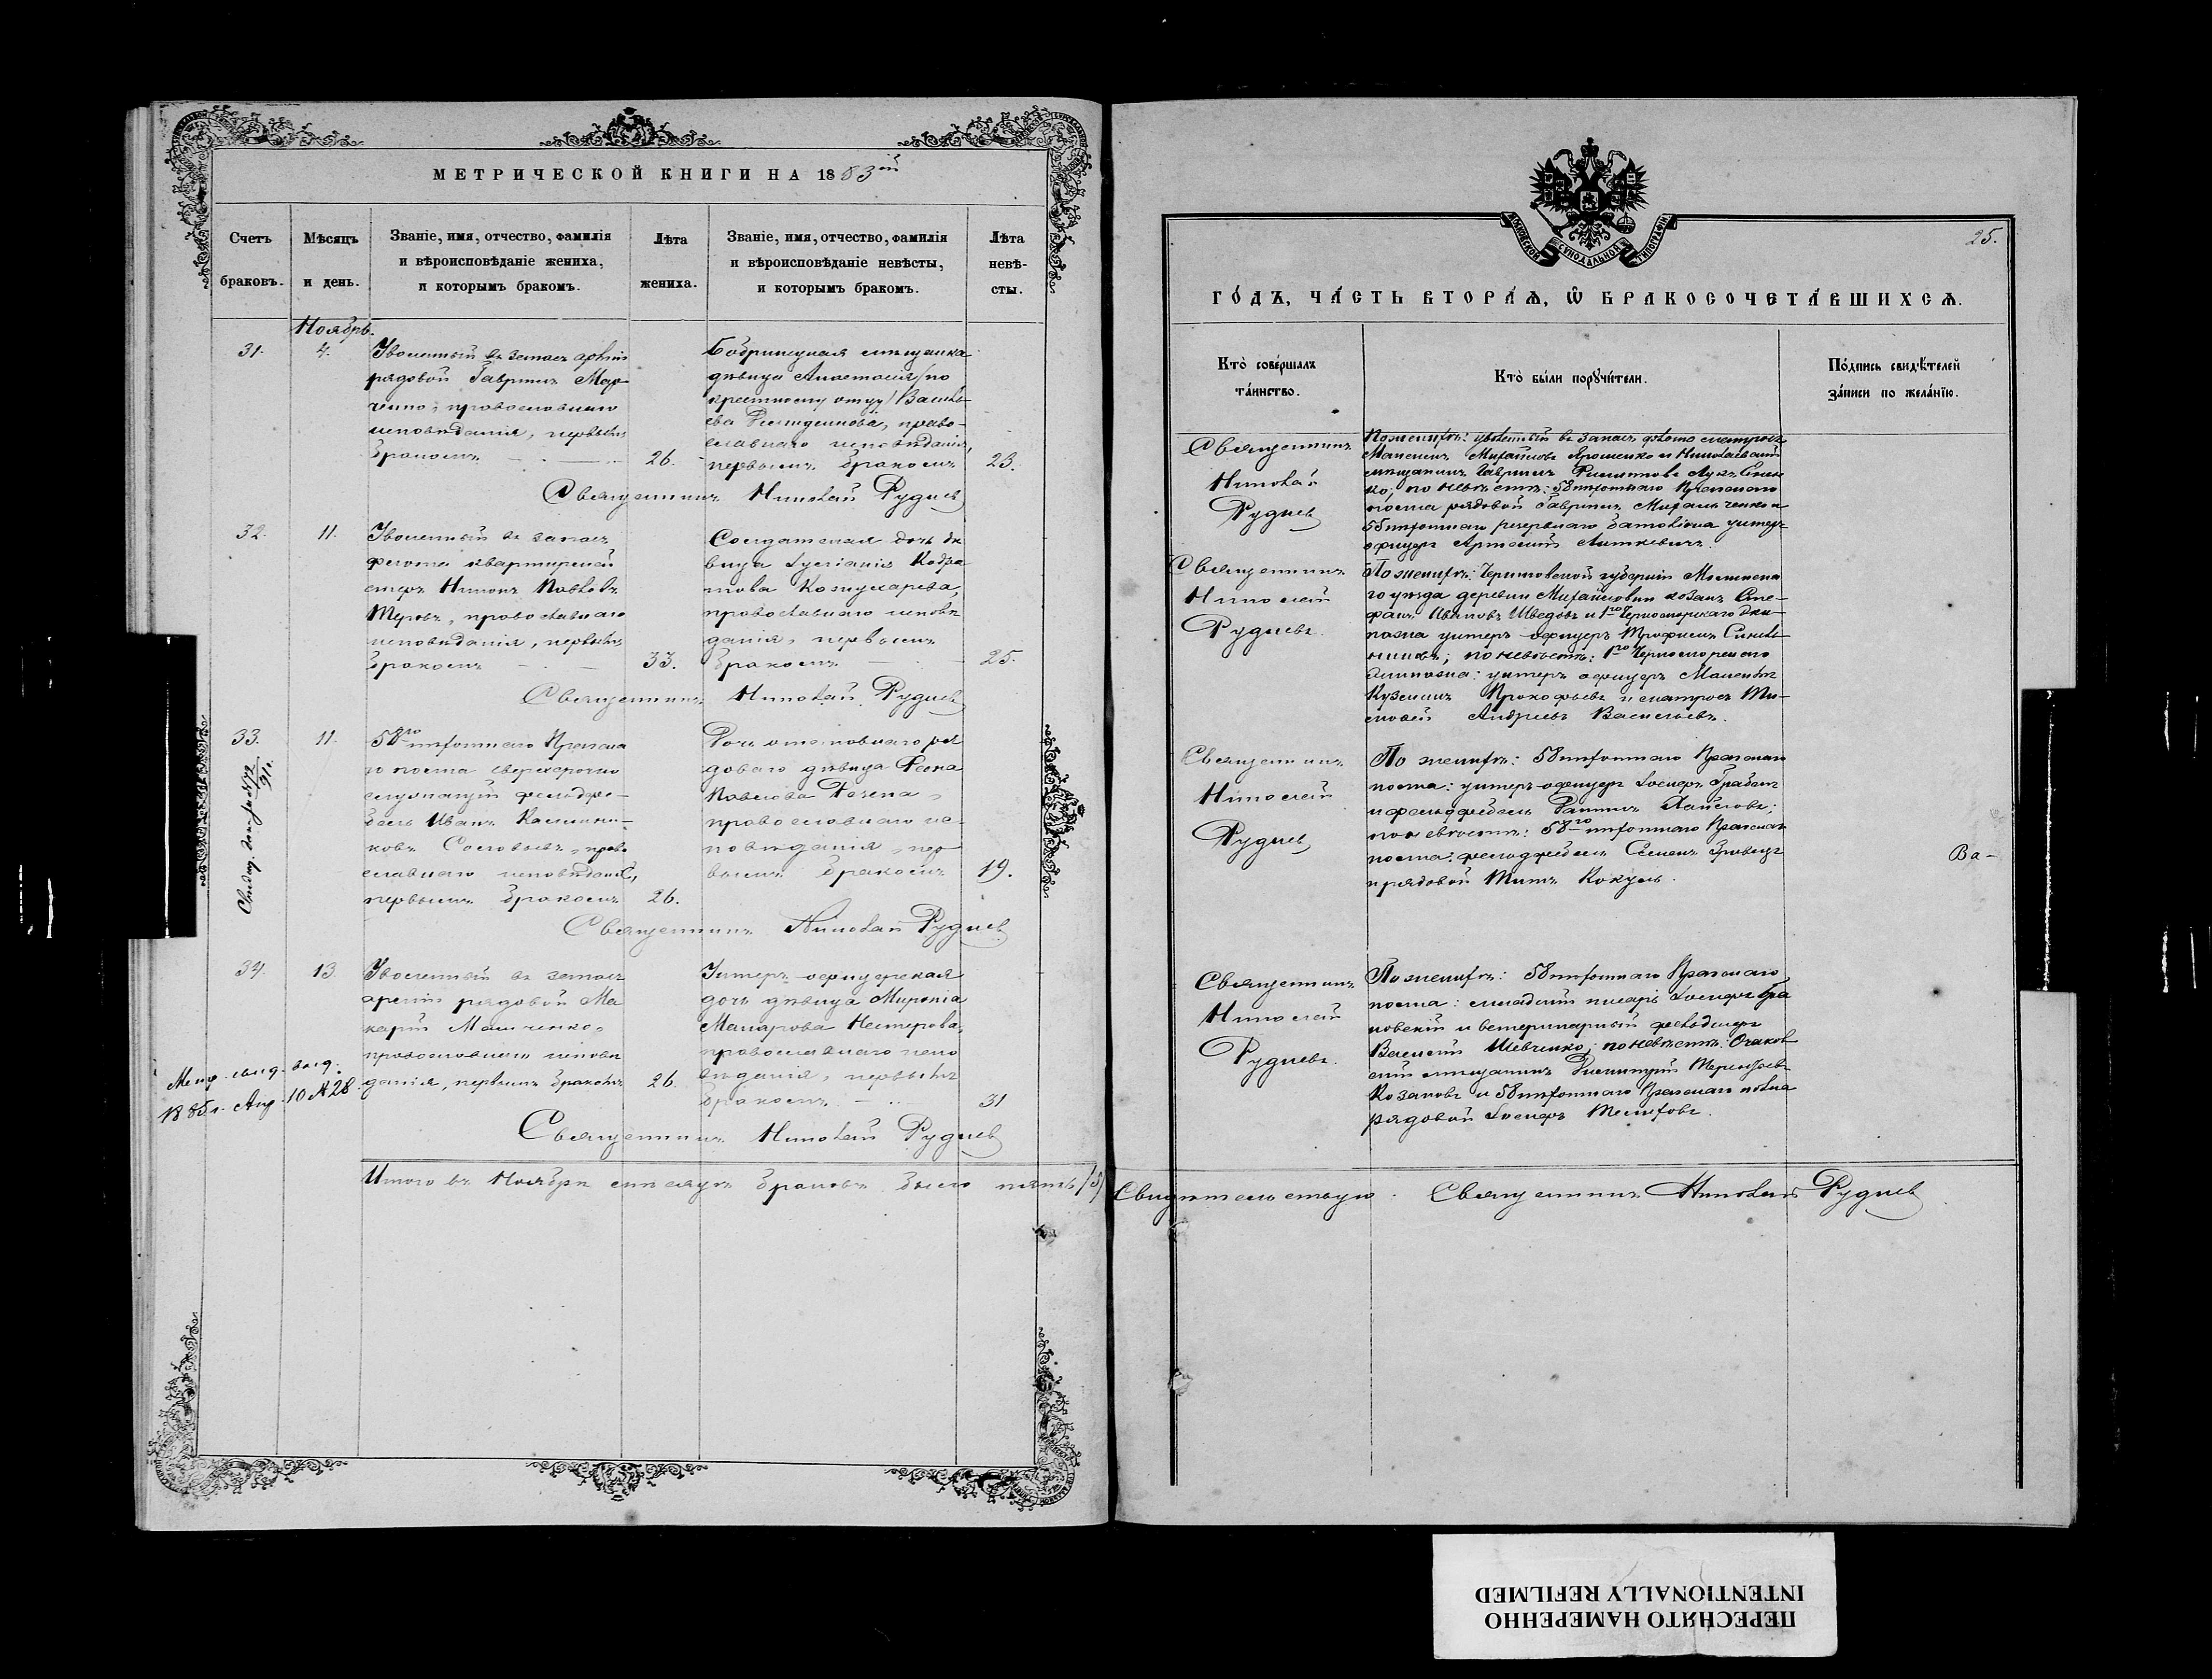 МЕТРИЧЕСКОЙ КНИГИ НА 1883 ій
Счетъ браковъ.
Мѣсяцъ и день.
Званіе, имя, отчество, фамилія и вѣроисповѣданіе жениха, и которымъ бракомъ.
Лѣта жениха.
Званіе, имя, отчество, фамилія и вѣроисповѣданіе невѣсты, и которымъ бракомъ.
Лѣта невѣ-сты.
Ноябрь.
31.
4.
Уволенный въ запасъ арміи
рядовой Гавріилъ Мар
ченко, православнаго
исповѣданія, первымъ
бракомъ
26.
Бобринецкая мѣщанка
дѣвица Анастасія /по
крестному отцу/ Василь
ева, право-
славнаго исповѣданія,
первымъ бракомъ
23.
Священникъ Николай Рудневъ
32.
11.
Уволенный въ запасъ
флота квартирмей
стеръ Никонъ Павловъ
православнаго
исповѣданія, первымъ
бракомъ
33.
Солдатская дочь дѣ
вица Кодра
това
православнаго исповѣ
данія, первымъ
бракомъ
25.
Священникъ Николай Рудневъ
33.
11.
58го пѣхотнаго Пражска
го полка сверхсрочно
служащій фельдфе-
бель Иванъ Калинни-
ковъ Соловьевъ, право
славнаго исповѣданія,
первымъ бракомъ
26.
Дочь отставнаго ря
доваго дѣвица Ѳеона
Павлова
православнаго ис
повѣданія, пер
вымъ бракомъ
19.
Священникъ Николай Рудневъ
34.
13.
Уволенный въ запасъ
арміи рядовой Ма
карій
православнаго исповѣ
данія, первымъ бракомъ
26.
Унтеръ-офицерская
дочь дѣвица Миропія
Макарова Нестерова,
православнаго испо
вѣданія, первымъ
бракомъ
31
Метр. свид. выд.
1885 г. Апр. 10 № 28.
Священникъ Николай Рудневъ
Итого въ Ноябрѣ мѣсяцѣ браковъ было пять /5/
25.
МОСКОВСКОЙ СѴНОДАЛЬНОЙ ТИПОГРАФІИ
ГО́ДЪ, ЧА́СТЬ ВТОРА́Ѧ, Ѽ БРАКОСОЧЕТА́ВШИХСѦ.
Кто̀ соверша́лъ та́инство.
Кто̀ бы́ли порꙋчи́тели.
По́дпись свидѣ́телей за́писи по жела́нїю.
Священникъ
Николай
Рудневъ
По женихѣ: уволенный въ запасъ флота матросъ
Михайловъ Ярошенко и Николаевскій
мѣщанинъ Гавріилъ
ко; по невѣстѣ: 58 пѣхотнаго Пражскаго
полка рядовой Гавріилъ Михальченко и
58 пѣхотнаго резервнаго баталіона унтеръ
офицеръ
Священникъ
Николай
Рудневъ.
По женихѣ: Черниговской губерніи
го уѣзда деревни Михайловки козакъ Сте-
фанъ Ивановъ Шведовъ и 1го Черноморскаго Эки-
пажа унтеръ-офицеръ Трофимъ
по невѣстѣ: 1го Черноморскаго
Экипажа: унтеръ офицеръ
Кузьминъ Прокофьевъ и матросъ Ти-
мофей Андреевъ Васильевъ.
Священникъ
Николай
Рудневъ
По женихѣ: 58 пѣхотнаго Пражскаго
полка: унтеръ-офицеръ Іосифъ
и фельдфебель
по невѣстѣ: 58го пѣхотнаго Пражскаго
полка: фельдфебель Семенъ
и рядовой Титъ Кокуль.
Ва-
Священникъ
Николай
Рудневъ.
По женихѣ: 58 пѣхотнаго Пражскаго
полка: младшій писарь Іосифъ
новскій и ветеринарный фельдшеръ
Василій Шевченко; по невѣстѣ: Очаков
скій мѣщанинъ Димитрій Терентьевъ
Козаковъ и 58 пѣхотнаго Пражскаго полка
рядовой Іосифъ
Свидѣтельствую. Священникъ Николай Рудневъ
ПЕРЕСНЯТО НАМЕРЕННО
INTENTIONALLY REFILMED